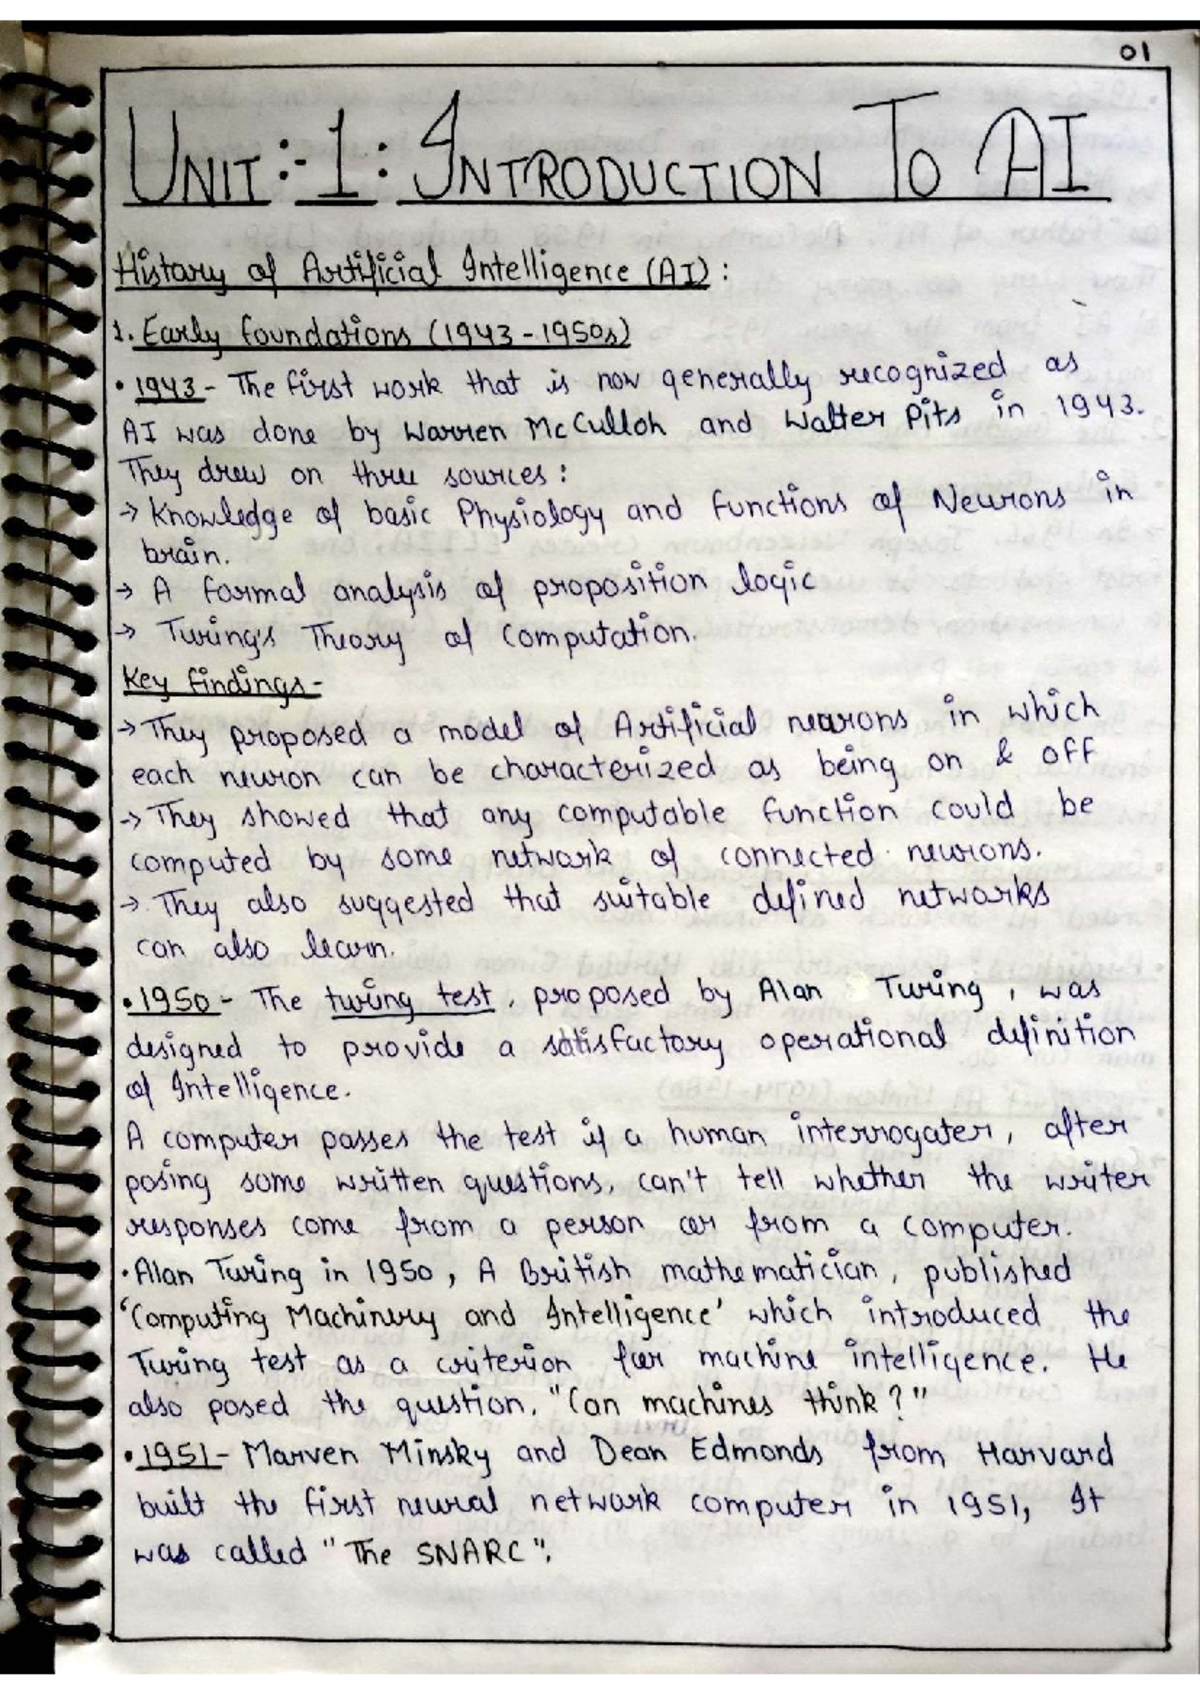 01
UNIT:-1: INTRODUCTION TO AI
History of Artificial Intelligence (AI) :
1. Early foundations (1943-1950s)
• 1943 - The first work that is now generally recognized as
AI was done by Warren McCulloh and Walter Pits in 1943.
They drew on three sources :
→ Knowledge of basic Physiology and functions of Neurons in
brain.
→ A formal analysis of proposition logic
→ Turing's Theory of Computation.
Key findings -
→ They proposed a model of Artificial neurons in which
each neuron can be characterized as being on & off
→ They showed that any computable function could be
computed by some network of connected neurons.
→ They also suggested that suitable defined networks
can also learn.
• 1950 - The turing test, proposed by Alan Turing, was
designed to provide a satisfactory operational definition
of Intelligence.
A computer passes the test if a human interrogater, after
posing some written questions, can't tell whether the writer
responses come from a person or from a computer.
• Alan Turing in 1950, A British mathematician, published
'Computing Machinery and Intelligence' which introduced the
Turing test as a criterion for machine intelligence. He
also posed the question, "Can machines think?"
• 1951 - Marven Minsky and Dean Edmonds from Harvard
built the first neural network computer in 1951, It
was called "The SNARC".